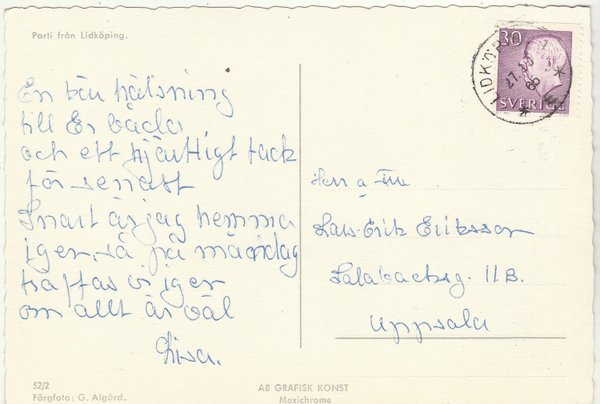 Parti från Lidköping.
En liten hälsning
till Er båda
och ett hjärtligt tack
för senast
Snart är jag hemma
igen, så på måndag
träffas vi igen
om allt är väl
Lisa.
30
SVERIGE
LIDKÖPING
27.
Herr o Fru
Lars-Erik Eriksson
Salabacksg. 11B.
Uppsala
52/2
Färgfoto: G. Algård.
AB GRAFISK KONST
Mexichrome